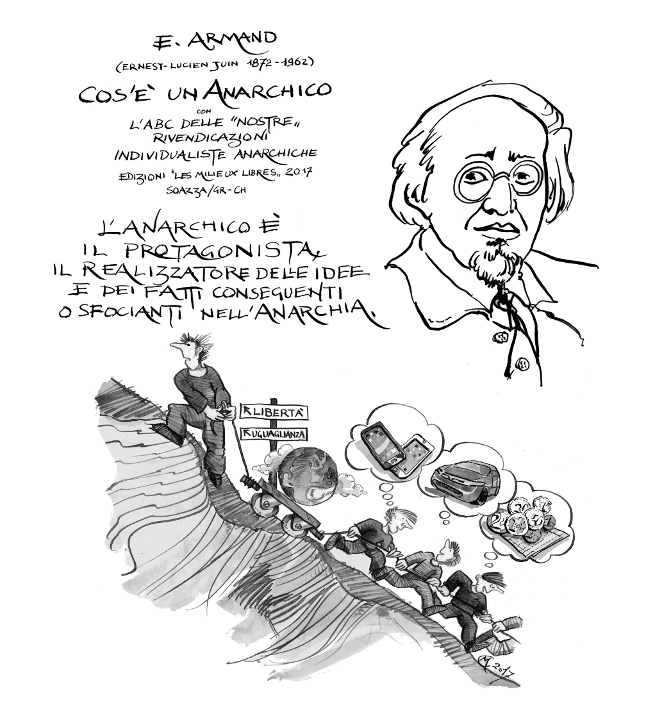 E. ARMAND
(ERNEST-LUCIEN JUIN 1872-1962)
COS'È UN ANARCHICO
CON
L'ABC DELLE "NOSTRE„
RIVENDICAZIONI
INDIVIDUALISTE ANARCHICHE
EDIZIONI "LES MILIEUX LIBRES„ 2017
SOAZZA/GR-CH
L'ANARCHICO È
IL PROTAGONISTA,
IL REALIZZATORE DELLE IDEE
E DEI FATTI CONSEGUENTI
O SFOCIANTI NELL'ANARCHIA.
LIBERTÀ
UGUAGLIANZA
2017